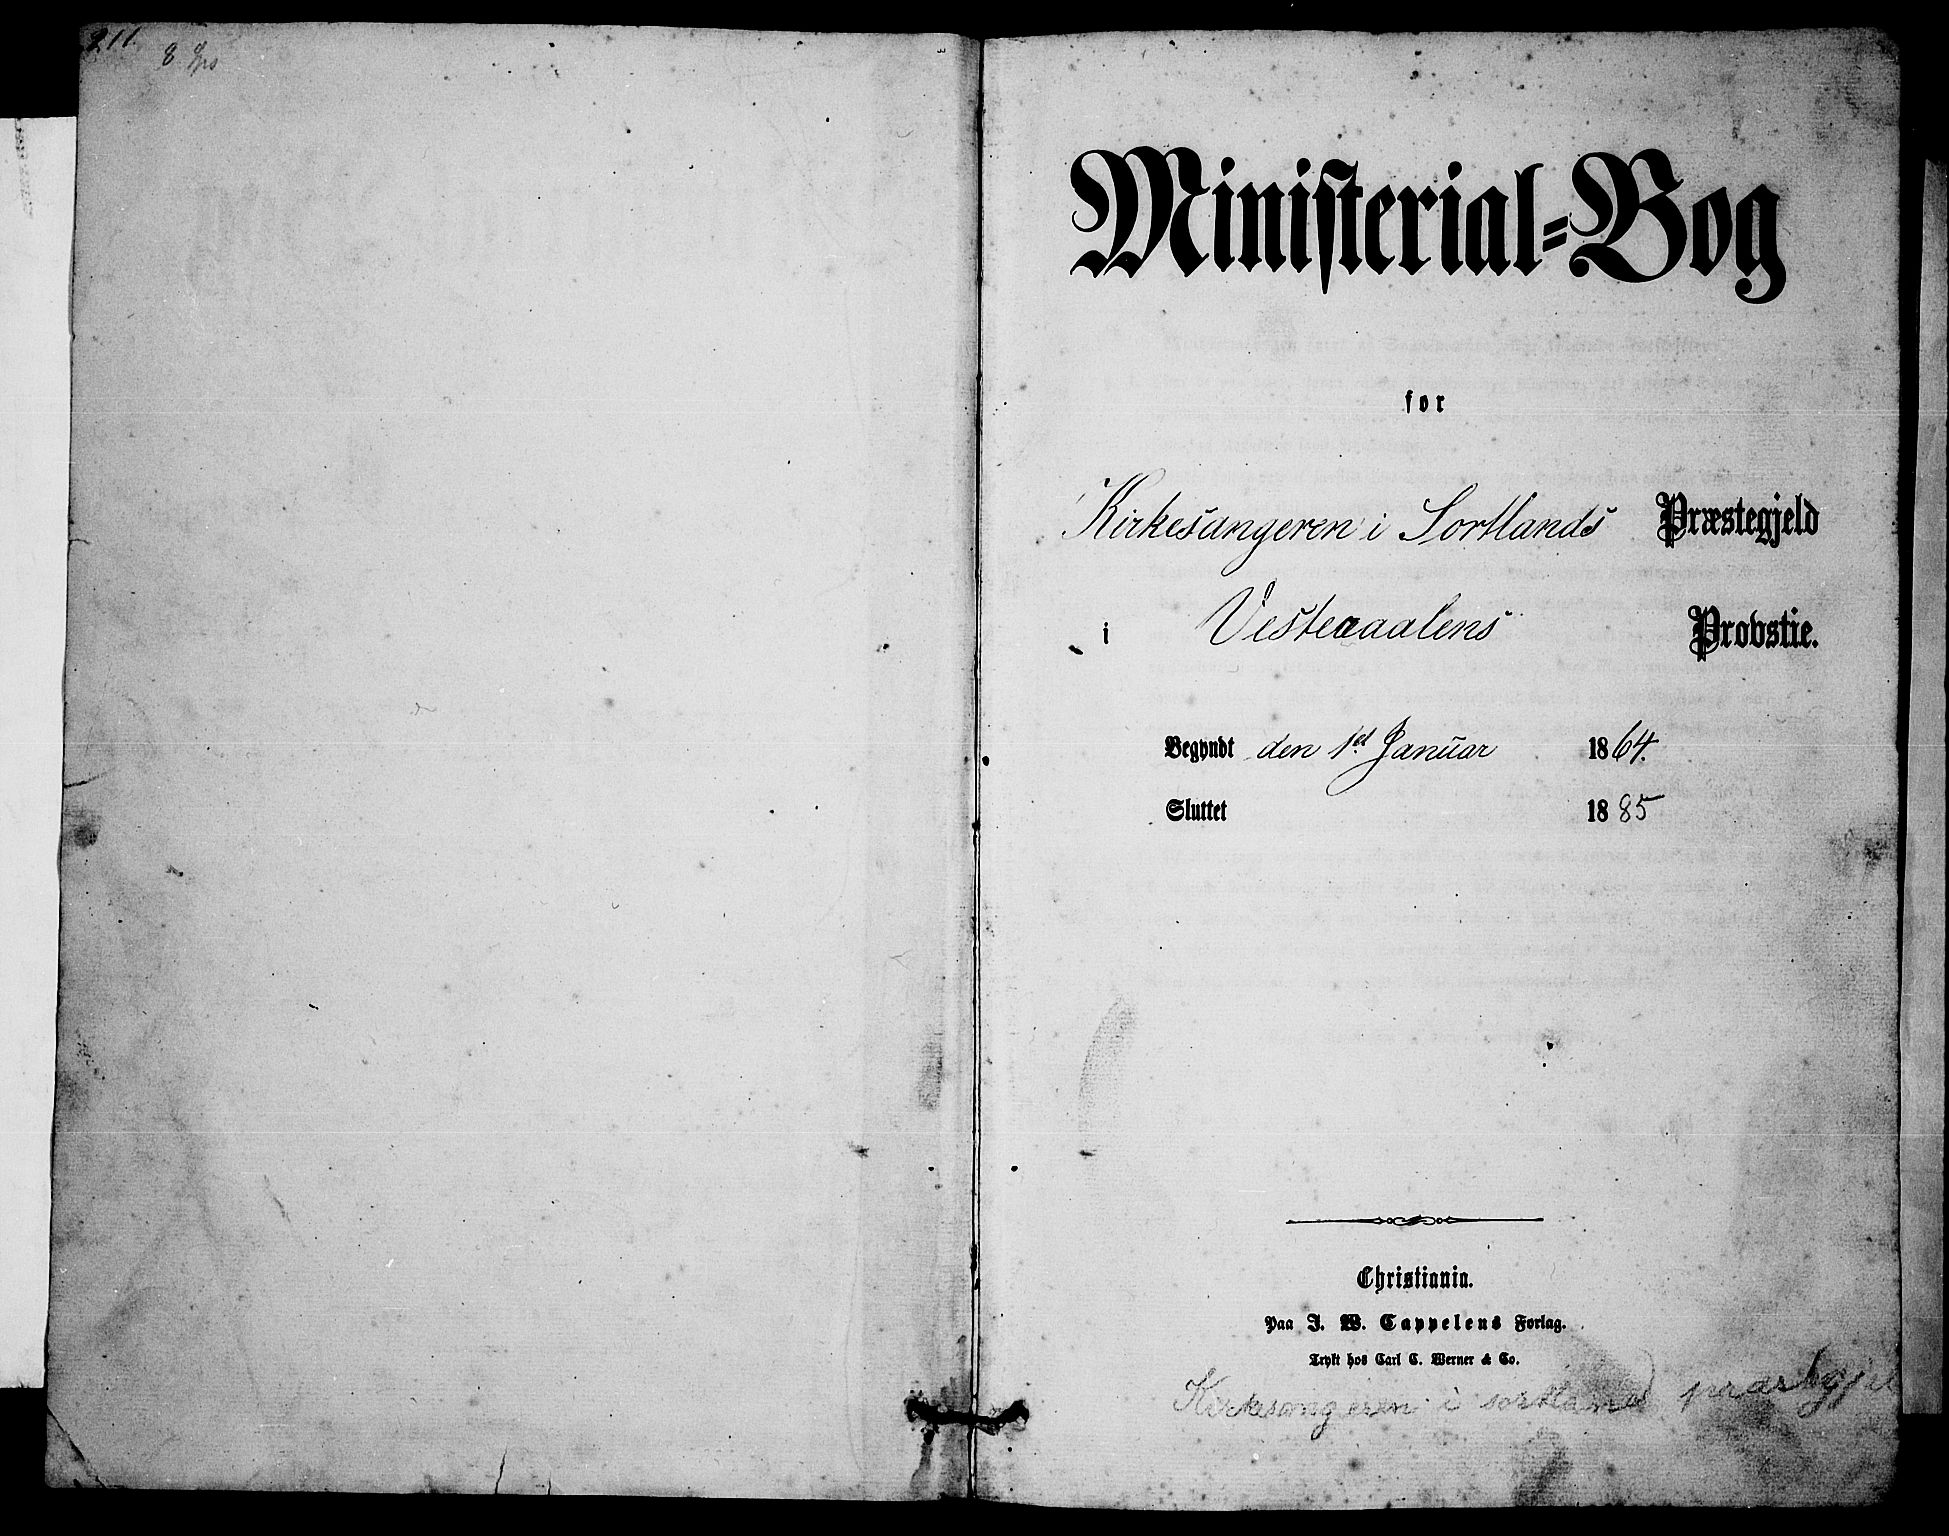 211.
Ministerial-Bog
for
Kirkesangeren i Sortlands Præstegjeld
i Vesteraalens Provstie.
Begyndt den 1ste Januar 1864.
Sluttet 1885
Christiania.
Paa J. W. Cappelens Forlag.
Trykt hos Carl C. Werner & Co.
Kirkesangeren i sortland